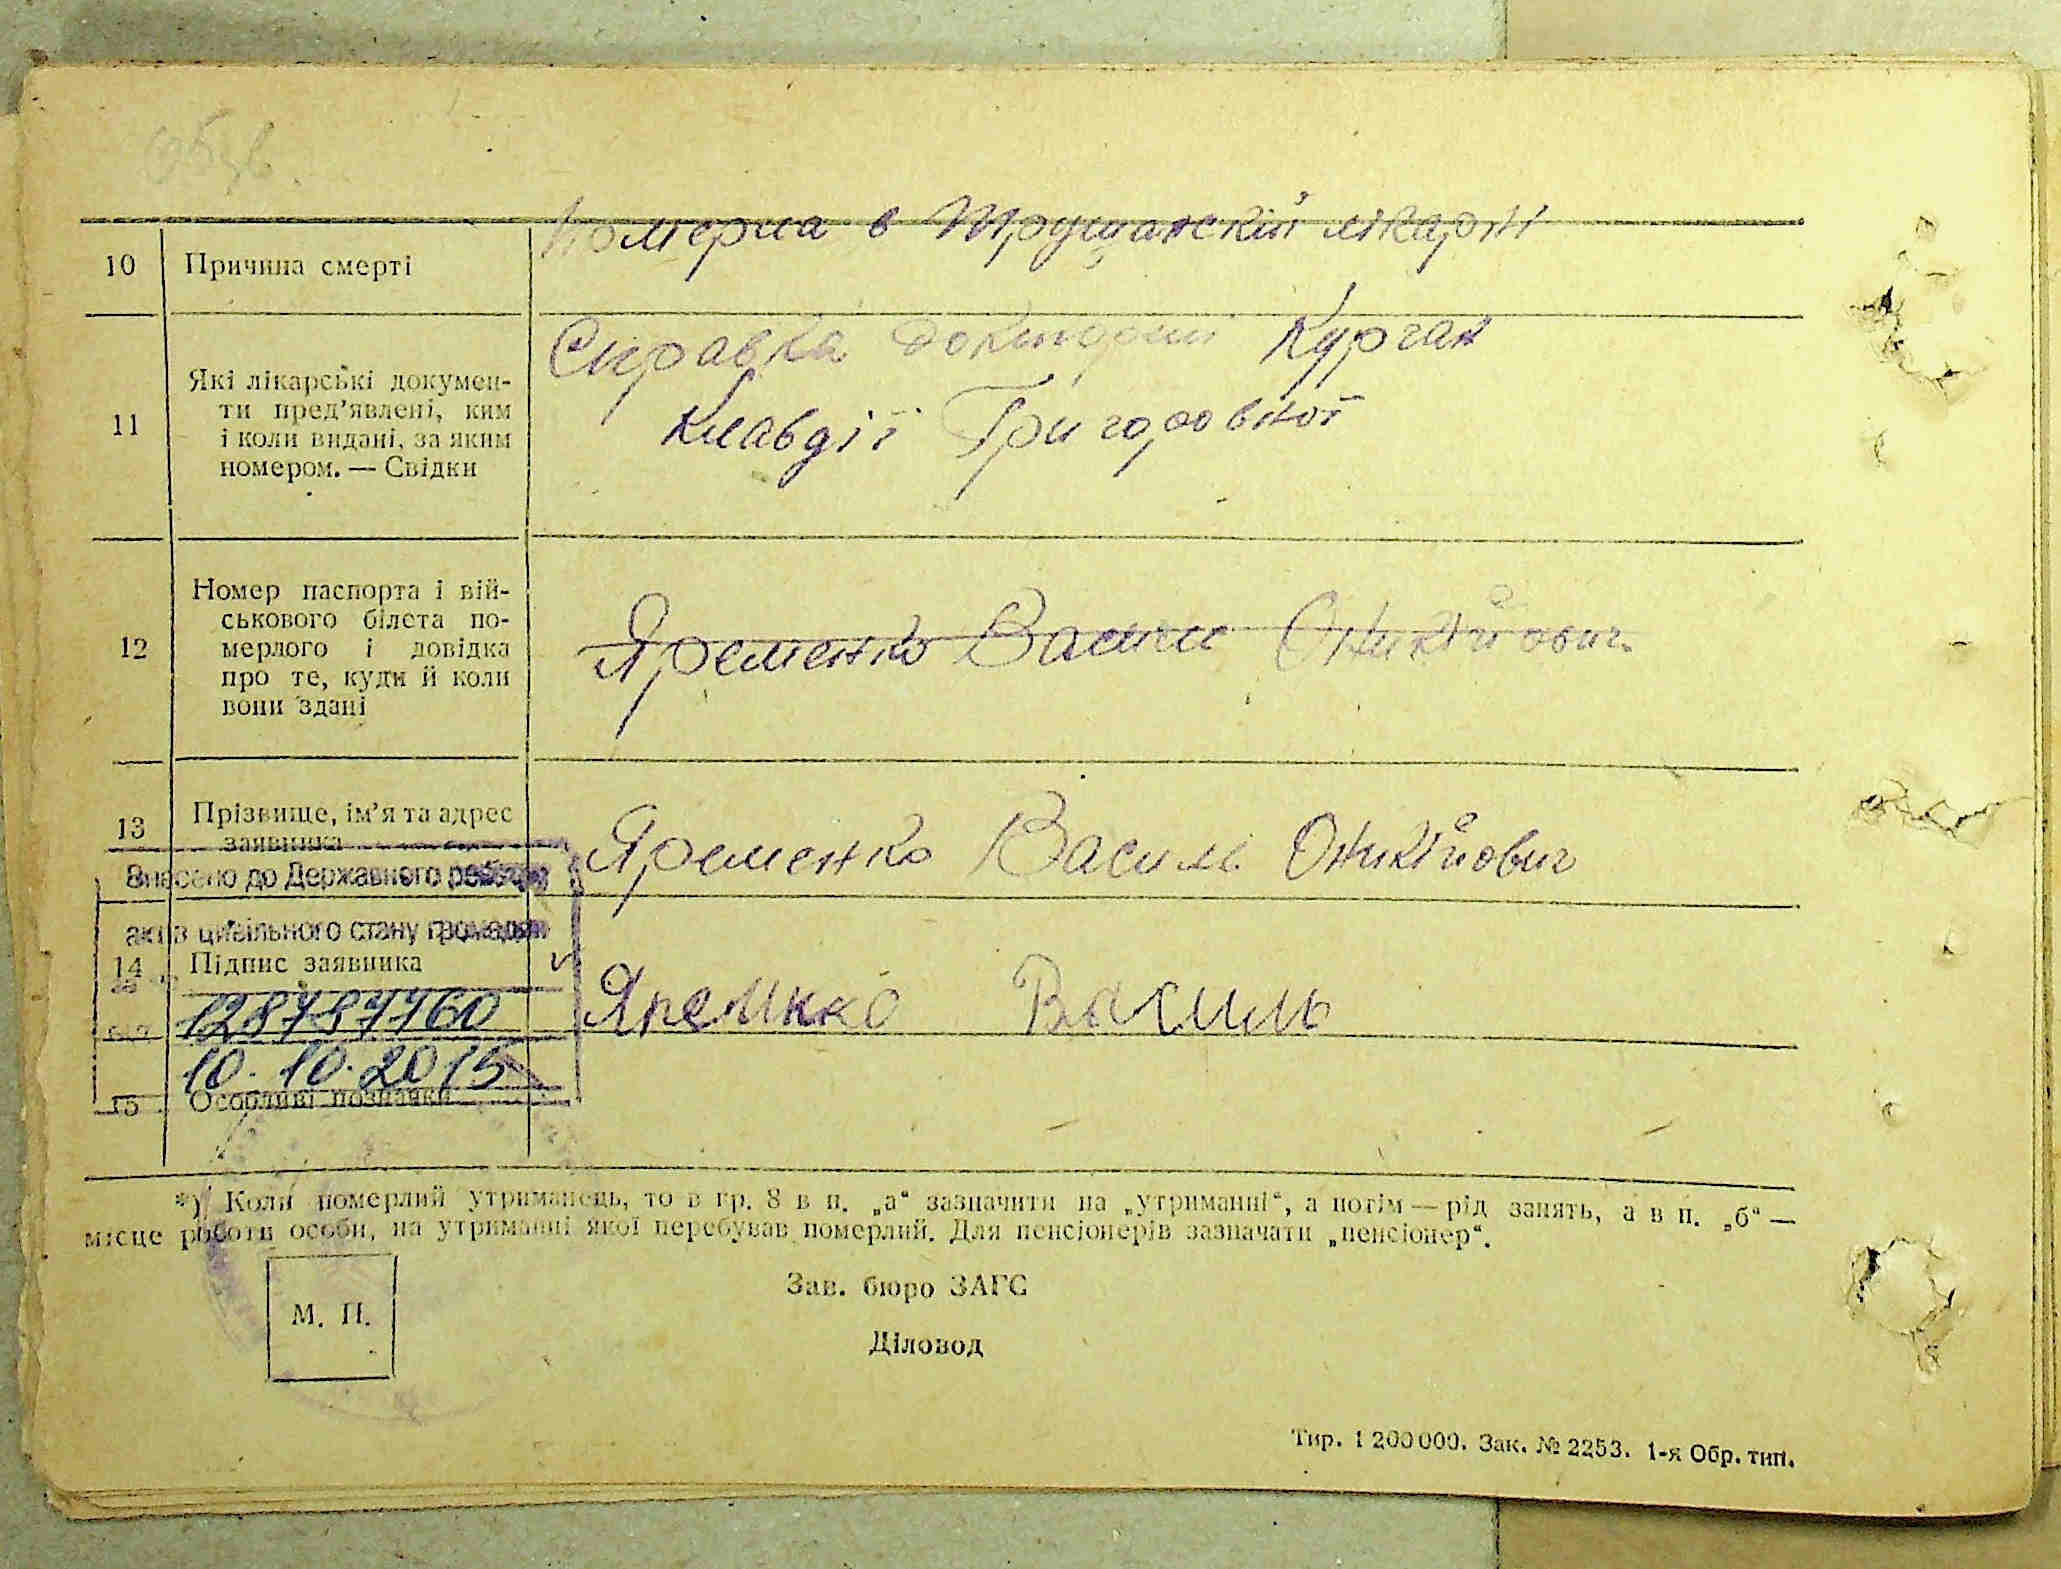 10 Причина смерті
Померла в Трущанскій лікарні
11 Які лікарські докумен-
ти пред'явлені, ким
і коли видані, за яким
номером. — Свідки
Справка докторші Курган
Клавдії Григоровної
12 Номер паспорта і вій-
ськового білета по-
мерлого і довідка
про те, куди й коли
вони здані
Яременко Васили Оникійович
13 Прізвище, ім'я та адрес
заявника
Яременко Василь Оникійович
Внесено до Державного реєстру
актів цивільного стану громадян
14 Підпис заявника
Яремнко Василь
10.10.2015
15 Особливі позначки
*) Коли померлий утриманець, то в гр. 8 в п. „а“ зазначити на „утриманні“, а потім — рід занять, а в п. „б“ —
місце роботи особи, на утриманні якої перебував померлий. Для пенсіонерів зазначати „пенсіонер“.
Зав. бюро ЗАГС
М. П.
Діловод
Тир. 1 200 000. Зак. № 2253. 1-я Обр. тип.